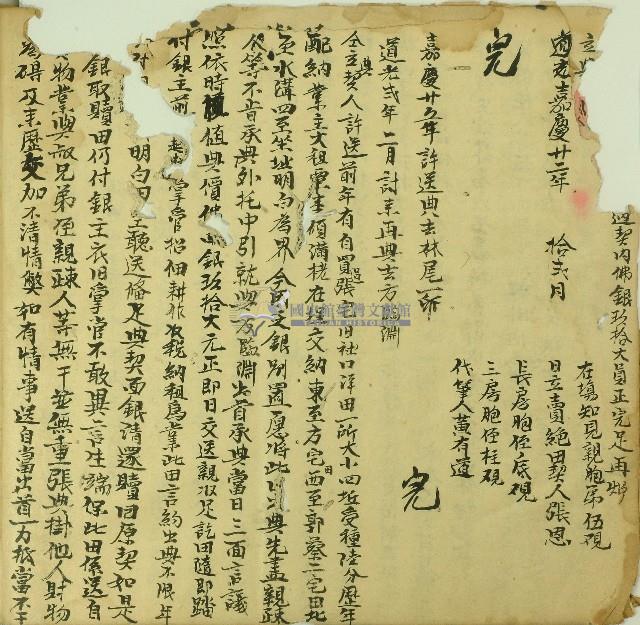 過契內佛銀玖拾大員正完足再炤
立
道光嘉慶廿三年 拾弍月
在塲知見親胞弟伍硯
日立賣絕田契人張恩
長房胞侄底硯
三房胞侄柱硯
代筆人黃有道
完
完
嘉慶廿五年許送典去林尾一所
道光弍年二月討來再典去方臨淵
仝立典契人許送前年有自買過張宅旧社口洋田一所大小四坵受種陸分歷年
配納業主大租粟
在
交納東至方宅田西至郭蔡二宅田北
至水溝四至坐址明白為界今因乏銀別置愿將此田出典先盡親疎
人等不肯承典外托中引就與方臨淵出首承典當日三面言議
照依時值典價佛銀玖拾大元正即日交送親收足訖田隨即踏
付銀主前
掌管招佃耕作收稅納租為業此田言約出典不限年
明白
聽送備足典契面銀清還贖回原契如是
銀取贖田仍付銀主依旧掌管不敢異言生端保此田係送自
物業與叔兄弟侄親疎人等無干並無重張典掛他人財物
為碍及來歷交加不清情弊如有情事送自當出首一力抵當不干